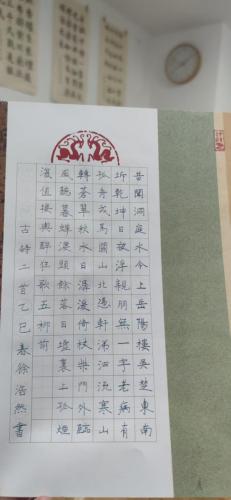 昔聞洞庭水今上岳陽樓吳楚東南
坼乾坤日夜浮親朋無一字老病有
孤舟戎馬關山北憑軒涕泗流寒山
轉蒼翠秋水日潺湲倚杖柴門外臨
風聽暮蟬渡頭餘落日墟裏上孤煙
復值接輿醉狂歌五柳前
古詩二首乙巳春徐浩然書